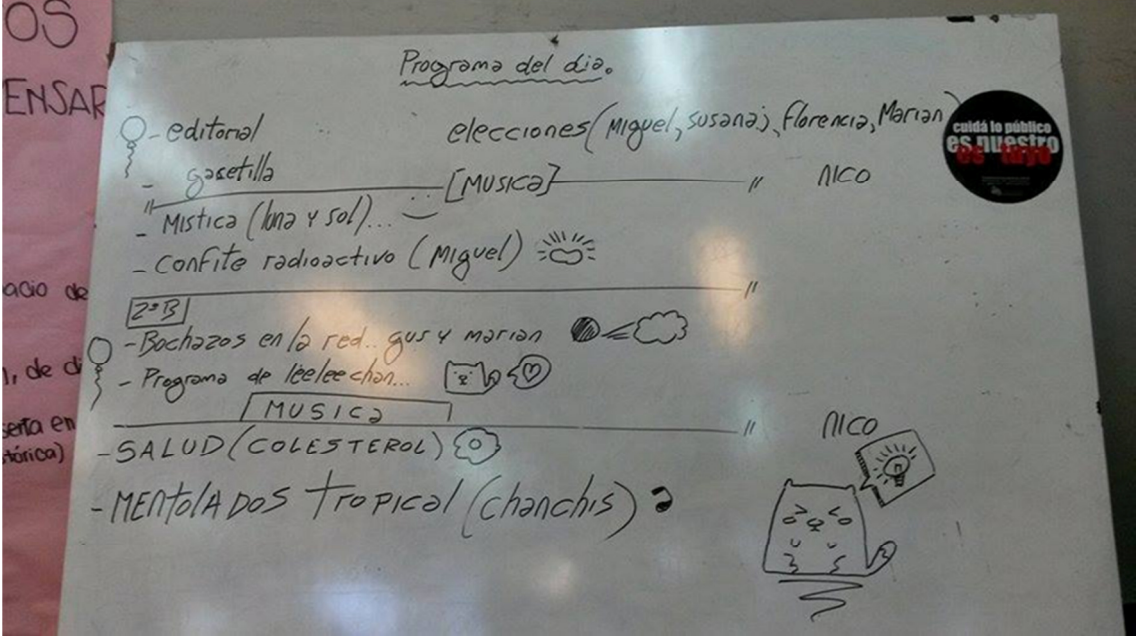 OS
ENSAR
acio de
, de di
seria en
stórica)
Programa del dia.
- editorial
elecciones (Miguel, susana), Florencia, Marian)
- gasetilla
[MUSICA]
NICO
- Mistica (luna y sol)...
- Confite radioactivo (Miguel)
2º B
- Bochazos en la red.. gus y marian
- Programa de leeleechan...
MUSICA
NICO
- SALUD (COLESTEROL)
- MENTOLADOS tropical (chanchis)
cuidá lo público
es nuestro
es tuyo